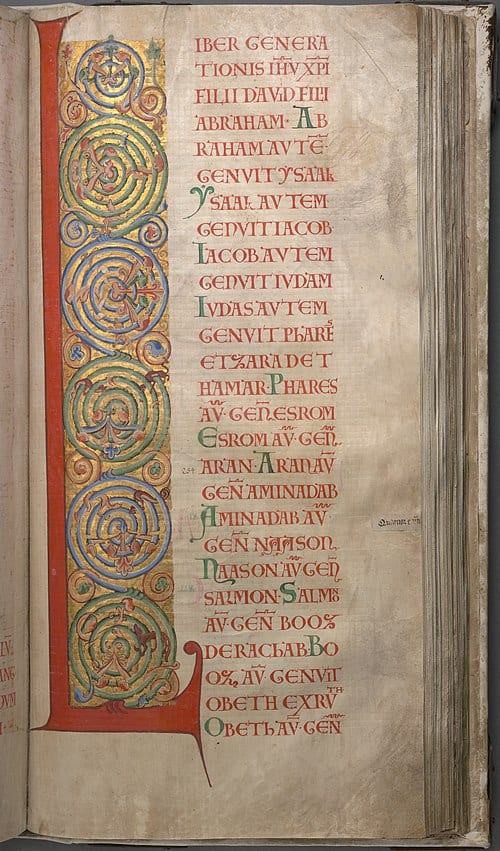 LIBER GENERA
TIONIS IHV XPI
FILII DAVID FILII
ABRAHAM· AB
RAHAM AVTE
GENVIT YSAAK
YSAAK AVTEM
GENVIT IACOB
IACOB AVTEM
GENVIT IVDAM
IVDAS AVTEM
GENVIT PHARES
ET ZARA DE T
HAMAR· PHARES
AV· GEN ESROM
ESROM AV· GEN
ARAN· ARAN AV
GEN AMINADAB
AMINADAB AV·
GEN NAASON,
NAASON AV GEN
SALMON· SALMŌ
AV· GEN BOOZ
DE RACHAB· BO
OZ, AV· GENVIT
OBETH EX RVTH
OBETH AV· GEN